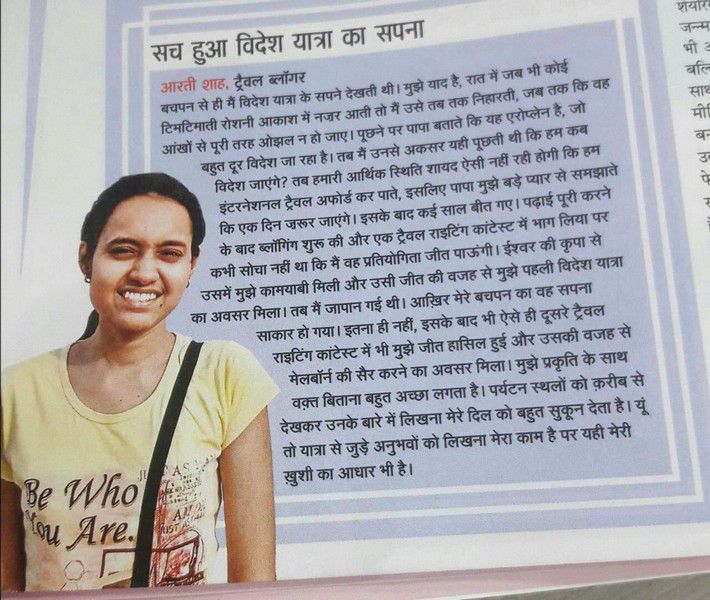 सच हुआ विदेश यात्रा का सपना
आरती शाह, ट्रैवल ब्लॉगर
बचपन से ही मैं विदेश यात्रा के सपने देखती थी। मुझे याद है, रात में जब भी कोई
टिमटिमाती रोशनी आकाश में नजर आती तो मैं उसे तब तक निहारती, जब तक कि वह
आंखों से पूरी तरह ओझल न हो जाए। पूछने पर पापा बताते कि यह एरोप्लेन है, जो
बहुत दूर विदेश जा रहा है। तब मैं उनसे अकसर यही पूछती थी कि हम कब
विदेश जाएंगे? तब हमारी आर्थिक स्थिति शायद ऐसी नहीं रही होगी कि हम
इंटरनेशनल ट्रैवल अफोर्ड कर पाते, इसलिए पापा मुझे बड़े प्यार से समझाते
कि एक दिन ज़रूर जाएंगे। इसके बाद कई साल बीत गए। पढ़ाई पूरी करने
के बाद ब्लॉगिंग शुरू की और एक ट्रैवल राइटिंग कांटेस्ट में भाग लिया पर
कभी सोचा नहीं था कि मैं वह प्रतियोगिता जीत पाऊंगी। ईश्वर की कृपा से
उसमें मुझे कामयाबी मिली और उसी जीत की वजह से मुझे पहली विदेश यात्रा
का अवसर मिला। तब मैं जापान गई थी। आख़िर मेरे बचपन का वह सपना
साकार हो गया। इतना ही नहीं, इसके बाद भी ऐसे ही दूसरे ट्रैवल
राइटिंग कांटेस्ट में भी मुझे जीत हासिल हुई और उसकी वजह से
मेलबॉर्न की सैर करने का अवसर मिला। मुझे प्रकृति के साथ
वक़्त बिताना बहुत अच्छा लगता है। पर्यटन स्थलों को क़रीब से
देखकर उनके बारे में लिखना मेरे दिल को बहुत सुकून देता है। यूं
तो यात्रा से जुड़े अनुभवों को लिखना मेरा काम है पर यही मेरी
ख़ुशी का आधार भी है।
Be Who
You Are.